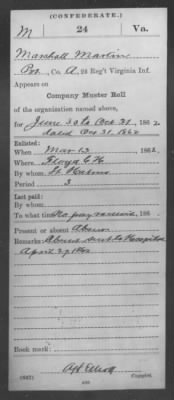 (CONFEDERATE.)
M 24 Va.
Marshall Martin
Pvt, Co. A, 24 Reg't Virginia Inf.
Appears on
Company Muster Roll
of the organization named above,
for June 30 to Oct 31, 1862.
dated Oct 31, 1862
Enlisted:
When Mar 13, 1862.
Where Floyd C H
By whom Lt.
Period 3
Last paid:
By whom
To what time No pay received, 186 .
Present or absent Absent
Remarks: Absent sent to Hospital
April 27 1862
Book mark:
Copyist.